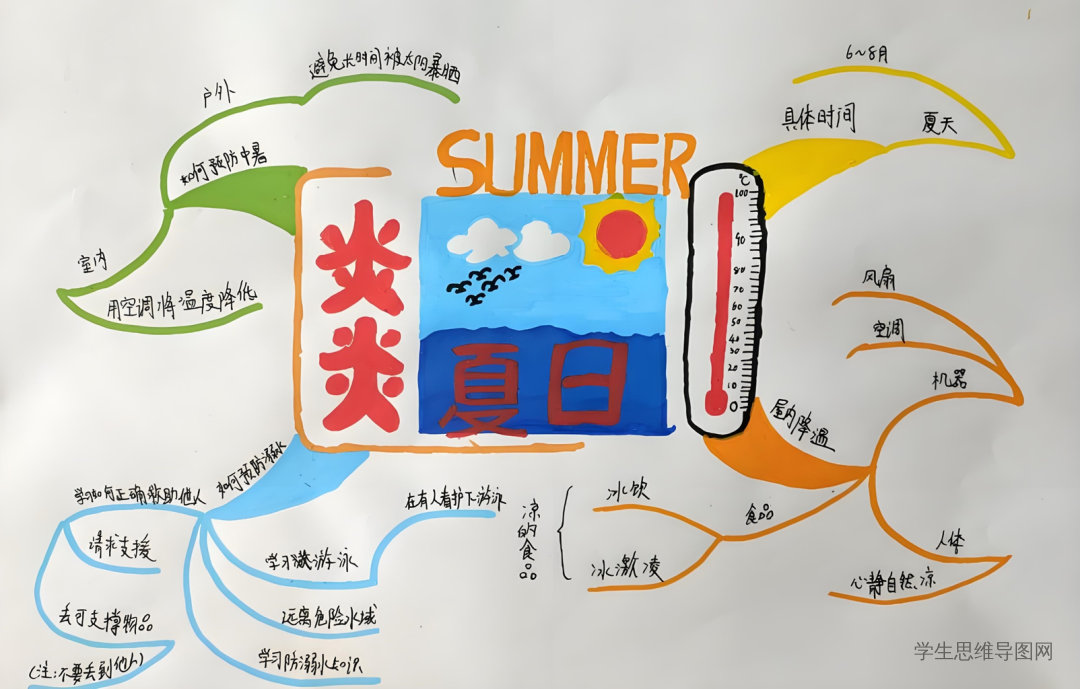 SUMMER
炎炎
夏日
℃
100
90
80
70
60
50
40
30
20
10
0
具体时间
夏天
6~8月
屋内降温
机器
风扇
空调
人体
心静自然凉
食品
冰饮
冰激凌
凉的食品
如何预防溺水
学习如何正确救助他人
请求支援
去可支撑物品
(注:不要丢到他人)
学习游泳
在有人看护下游泳
远离危险水域
学习防溺水知识
如何预防中暑
户外
避免长时间被太阳暴晒
室内
用空调将温度降低
学生思维导图网